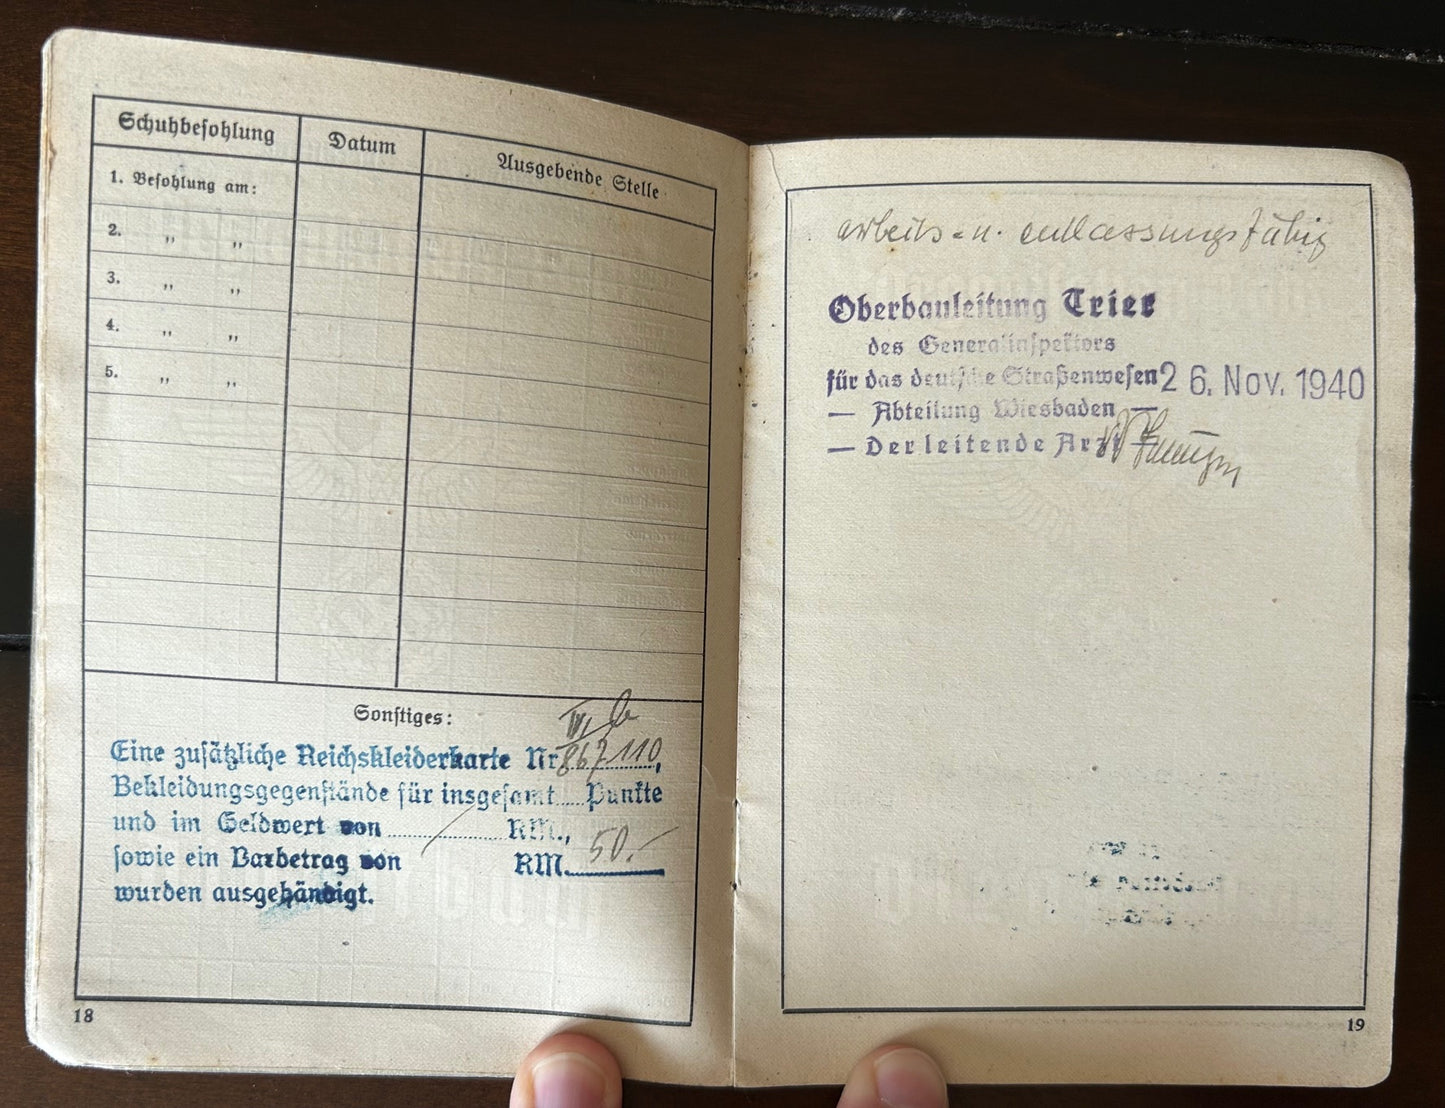 Schuhbesohlung Datum Ausgebende Stelle
1. Besohlung am:
2. „ „
3. „ „
4. „ „
5. „ „
Sonstiges:
Eine zusätzliche Reichskleiderkarte Nr. 867110,
Bekleidungsgegenstände für insgesamt.....Punkte
und im Geldwert von ............ RM.,
sowie ein Barbetrag von RM. 50.-
wurden ausgehändigt.
18
arbeits- u. entlassungsfähig
Oberbauleitung Trier
des Generalinspektors
für das deutsche Straßenwesen 26. Nov. 1940
— Abteilung Wiesbaden —
— Der leitende Arzt —
19